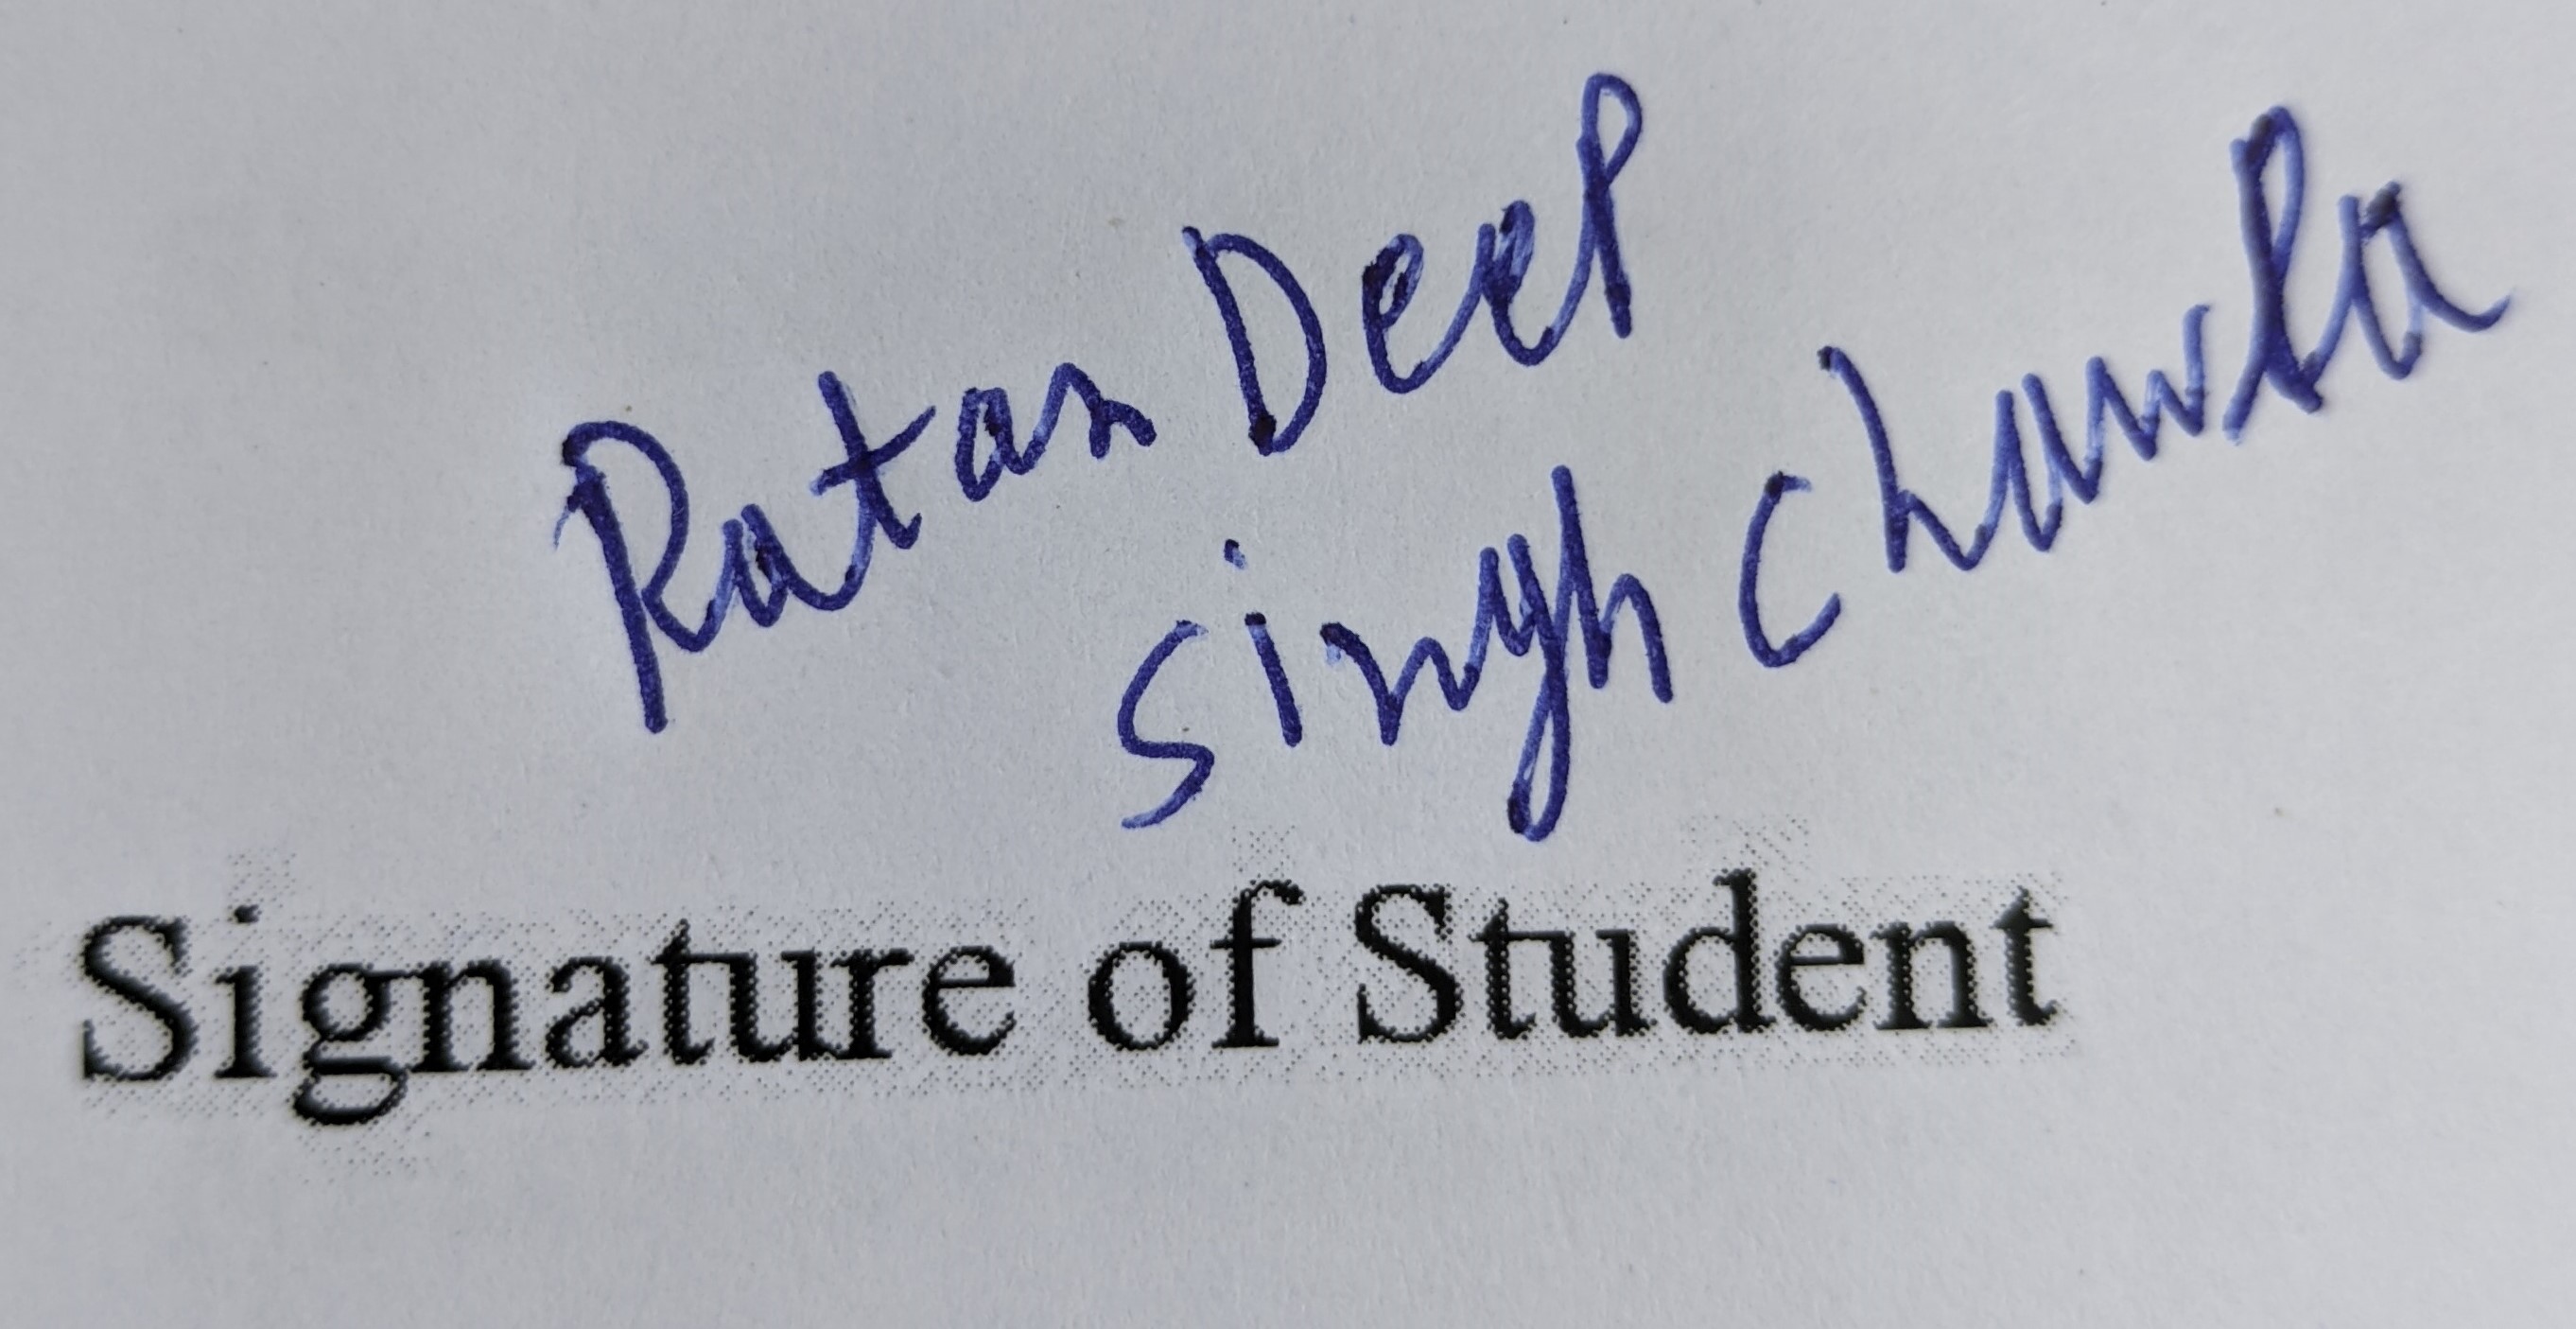 Ratan Deep
Singh Chawla
Signature of Student